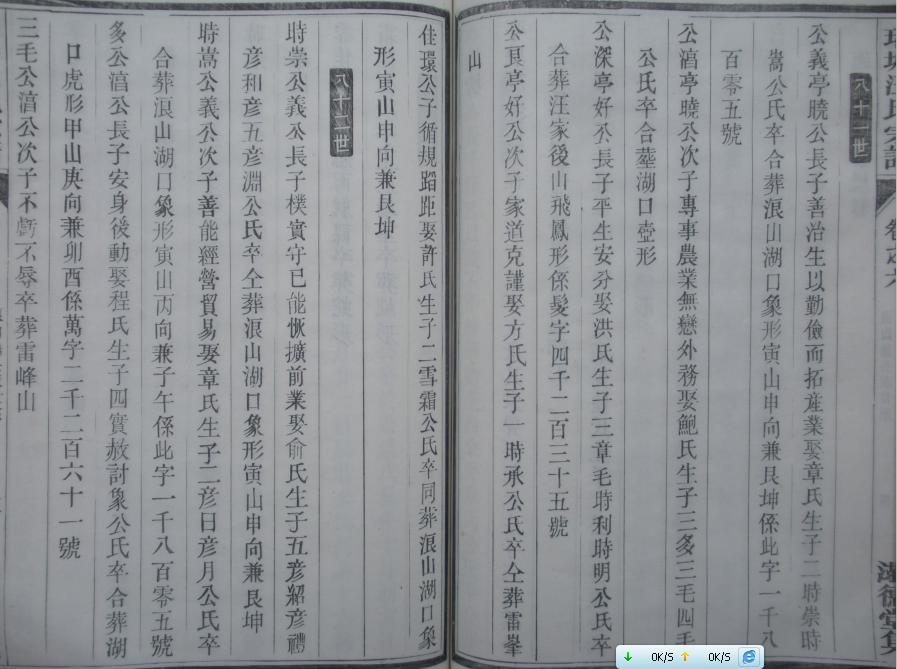 八十一世
公義亭曉公長子善治生以勤儉而拓產業娶章氏生子二時崇時
嵩公氏卒合葬浪山湖口象形寅山申向兼艮坤係此字一千八
百零五號
公滈亭曉公次子專事農業無戀外務娶鮑氏生子三多三毛四毛
公氏卒合塟湖口壺形
公深亭好公長子平生安分娶洪氏生子三章毛時利時明公氏卒
合葬汪家後山飛鳳形係髮字四千二百三十五號
公艮亭好公次子家道克謹娶方氏生子一時承公氏卒仝葬雷峯
山
佳環公子循規蹈距娶許氏生子二雪霜公氏卒同葬浪山湖口象
形寅山申向兼艮坤
八十二世
時崇公義公長子樸實守已能恢擴前業娶俞氏生子五彥紹彥禮
彥和彥五彥淵公氏卒仝葬浪山湖口象形寅山申向兼艮坤
時嵩公義公次子善能經營貿易娶章氏生子二彥日彥月公氏卒
合葬浪山湖口象形寅山丙向兼子午係此字一千八百零五號
多公滈公長子安身後動娶程氏生子四實赦討象公氏卒合葬湖
口虎形甲山庚向兼卯酉係萬字二千二百六十一號
三毛公滈公次子不虧不辱卒葬雷峰山
0K/S 0K/S